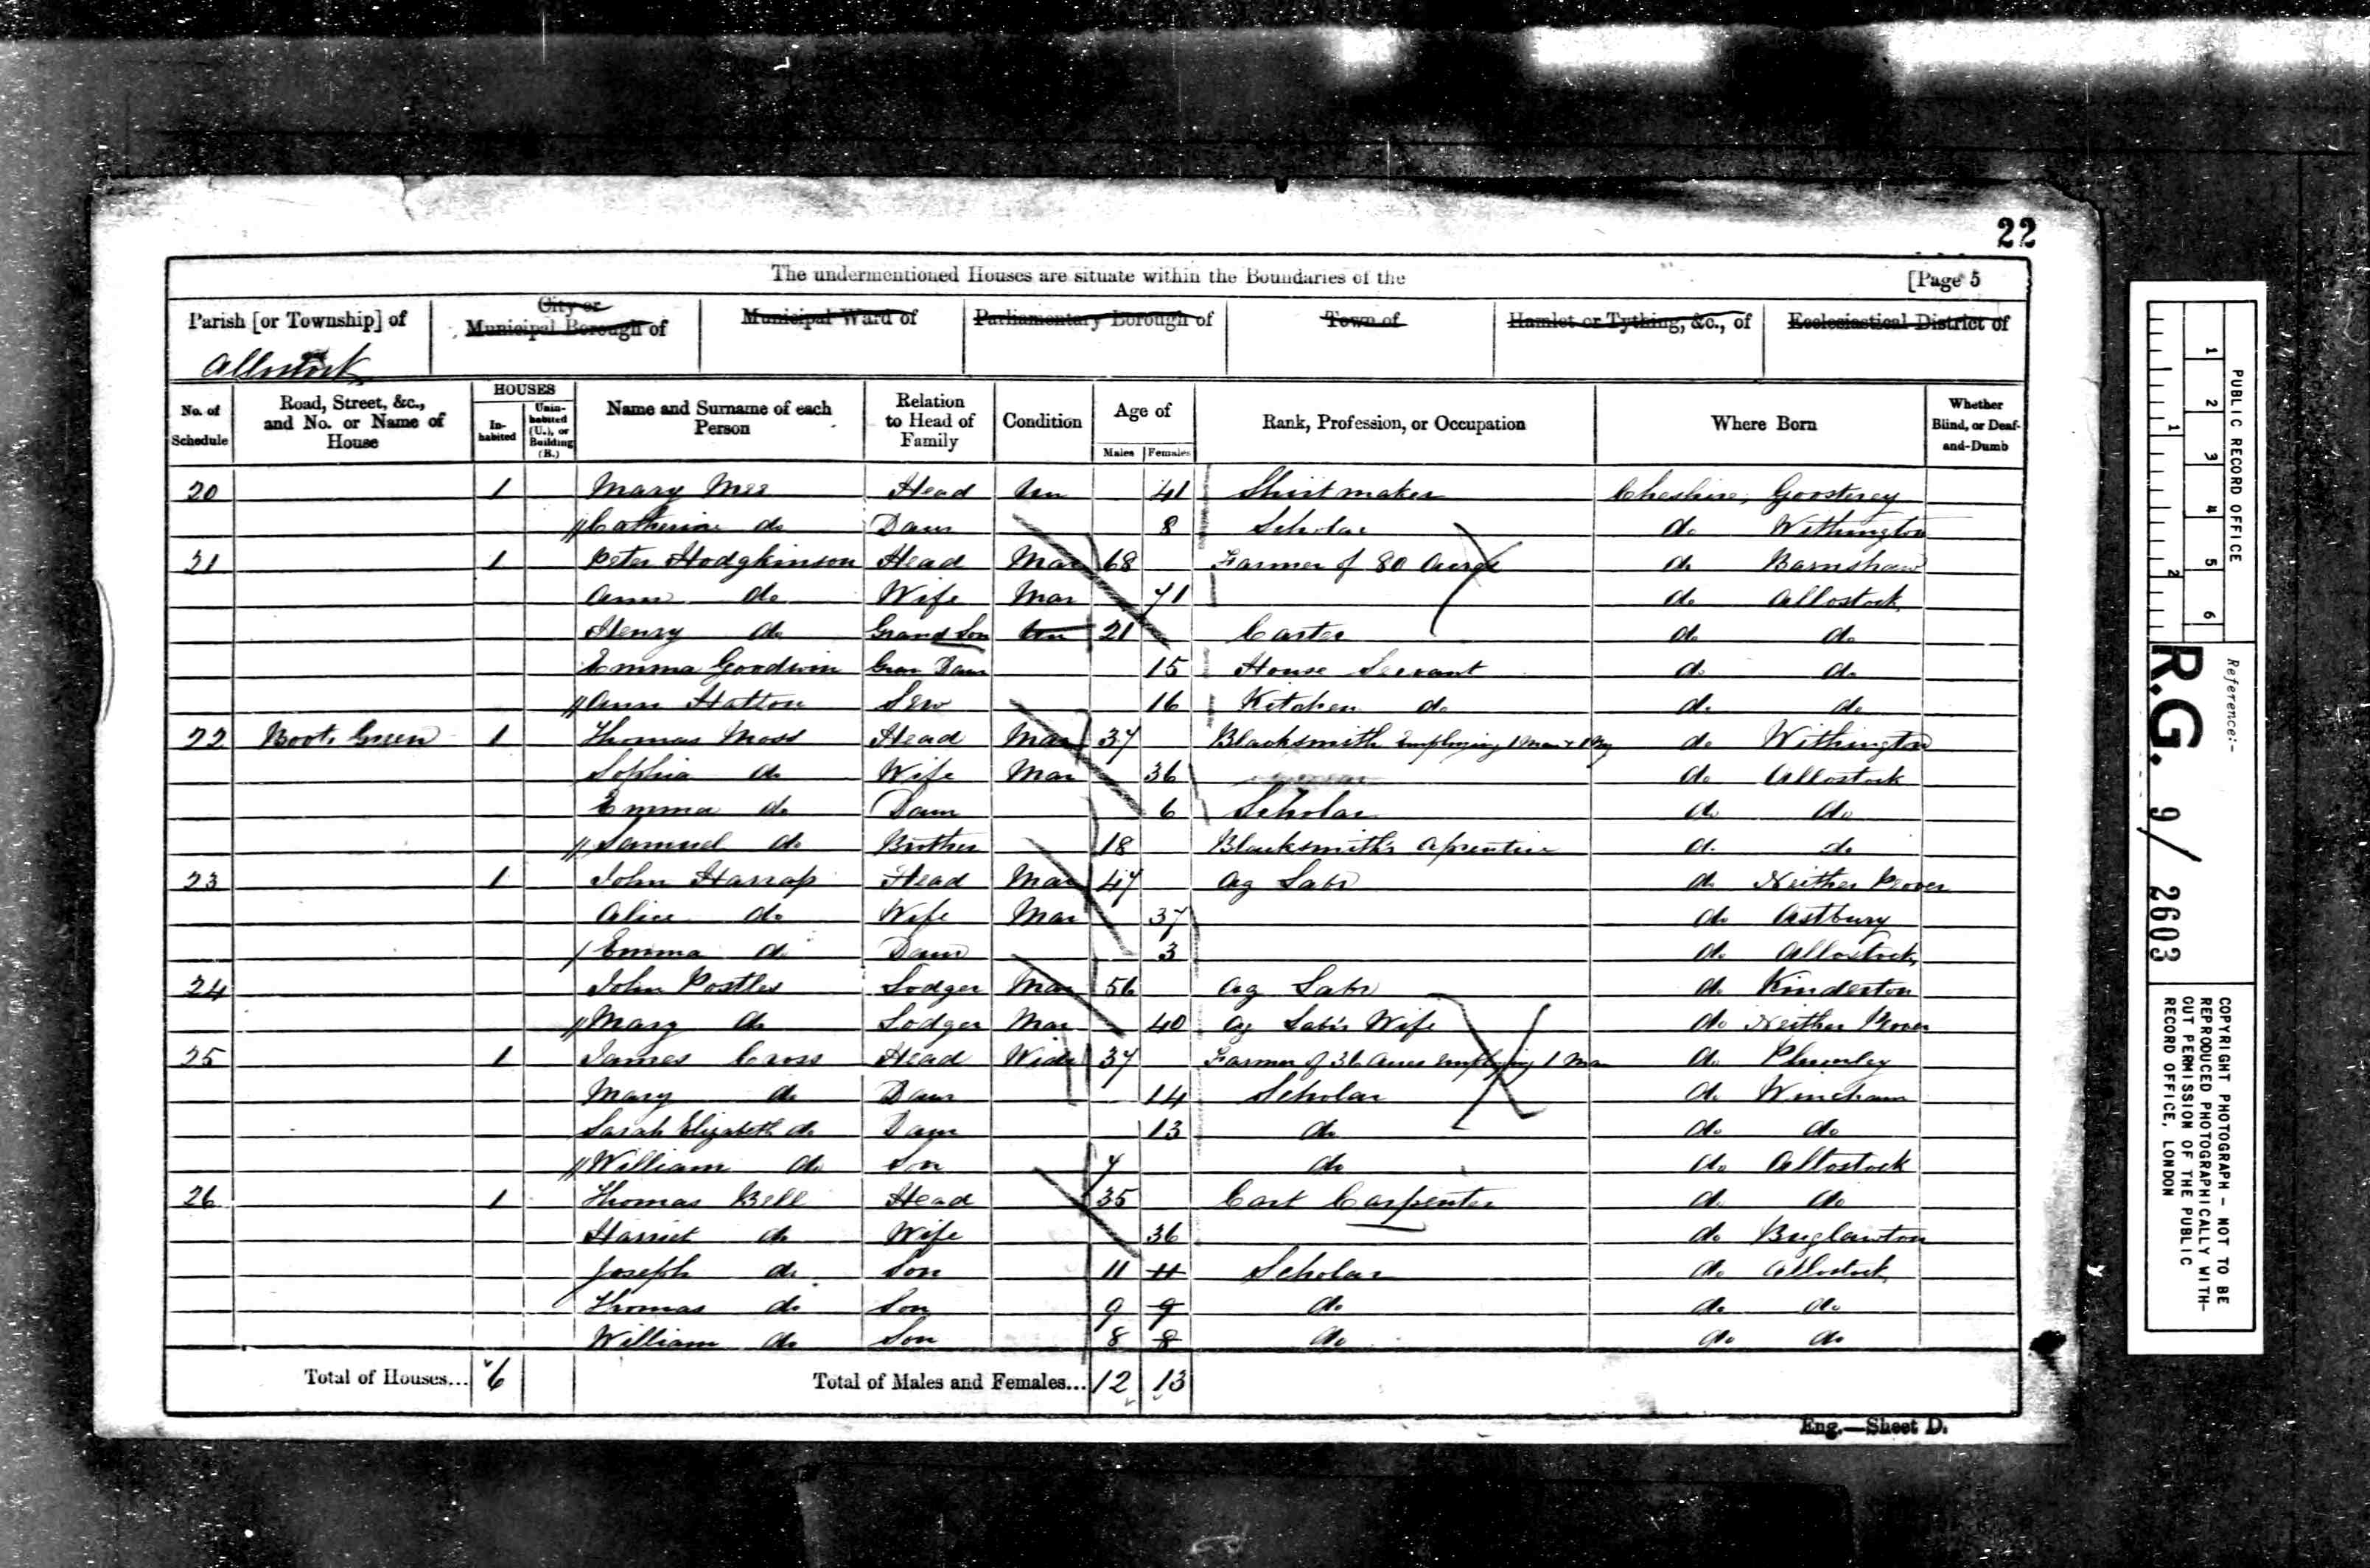 22
The undermentioned Houses are situate within the Boundaries of the [Page 5
Parish [or Township] of City or Municipal Borough of Municipal Ward of Parliamentary Borough of Town of Hamlet or Tything, &c., of Ecclesiastical District of
Allostock
No. of Schedule Road, Street, &c., and No. or Name of House HOUSES In-habited Unin-habited (U.), or Building (B.) Name and Surname of each Person Relation to Head of Family Condition Age of Males Females Rank, Profession, or Occupation Where Born Whether Blind, or Deaf-and-Dumb
20 1 Mary Mee Head Un 41 Shirt maker Cheshire, Goostrey
Catherine do Daur 8 Scholar do Withington
21 1 Peter Hodgkinson Head Mar 68 Farmer of 80 Acres do Barnshaw
Ann do Wife Mar 71 do Allostock
Henry do Grand Son Un 21 Carter do do
Emma Goodwin Gran Daur 15 House Servant do do
Ann Hatton Serv 16 Kitchen do do do
22 Boots Green 1 Thomas Moss Head Mar 37 Blacksmith Employing 1 Man & 1 Boy do Withington
Sophia do Wife Mar 36 do Allostock
Emma do Daur 6 Scholar do do
Samuel do Brother 18 Blacksmith's Aprentice do do
23 1 John Harrap Head Mar 47 Ag Labr do Neither Peover
Alice do Wife Mar 37 do Astbury
Emma do Daur 3 do Allostock
24 John Postles Lodger Mar 56 Ag Labr do Kinderton
Mary do Lodger Mar 40 Ag Labr's Wife do Neither Peover
25 1 James Cross Head Widr 37 Farmer of 36 Acres employing 1 Man do Plumley
Mary do Daur 14 Scholar do Wincham
Sarah Elizabeth do Daur 13 do do do
William do Son 7 do do Allostock
26 1 Thomas Bell Head 35 Cart Carpenter do do
Harriet do Wife 36 do Buglawton
Joseph do Son 11 11 Scholar do Allostock
Thomas do Son 9 9 do do do
William do Son 8 8 do do do
Total of Houses... 6 Total of Males and Females... 12 13
Eng.—Sheet D.
PUBLIC RECORD OFFICE
1 2 3 4 5 6
1 2
Reference:-
R.G. 9/ 2603
COPYRIGHT PHOTOGRAPH - NOT TO BE
REPRODUCED PHOTOGRAPHICALLY WITH-
OUT PERMISSION OF THE PUBLIC
RECORD OFFICE, LONDON